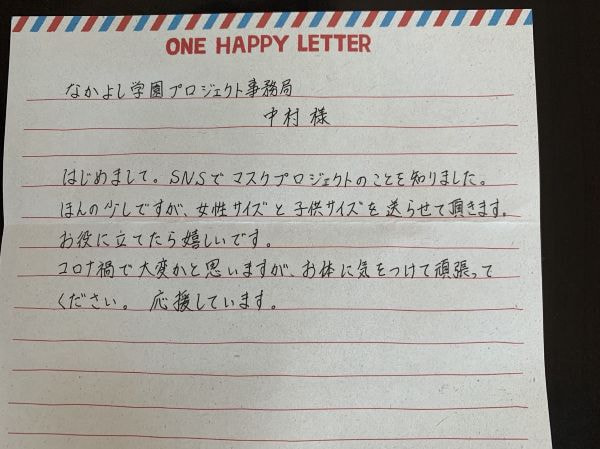 ONE HAPPY LETTER
なかよし学園プロジェクト事務局
中村様
はじめまして。SNSでマスクプロジェクトのことを知りました。
ほんの少しですが、女性サイズと子供サイズを送らせて頂きます。
お役に立てたら嬉しいです。
コロナ禍で大変かと思いますが、お体に気をつけて頑張って
ください。 応援しています。